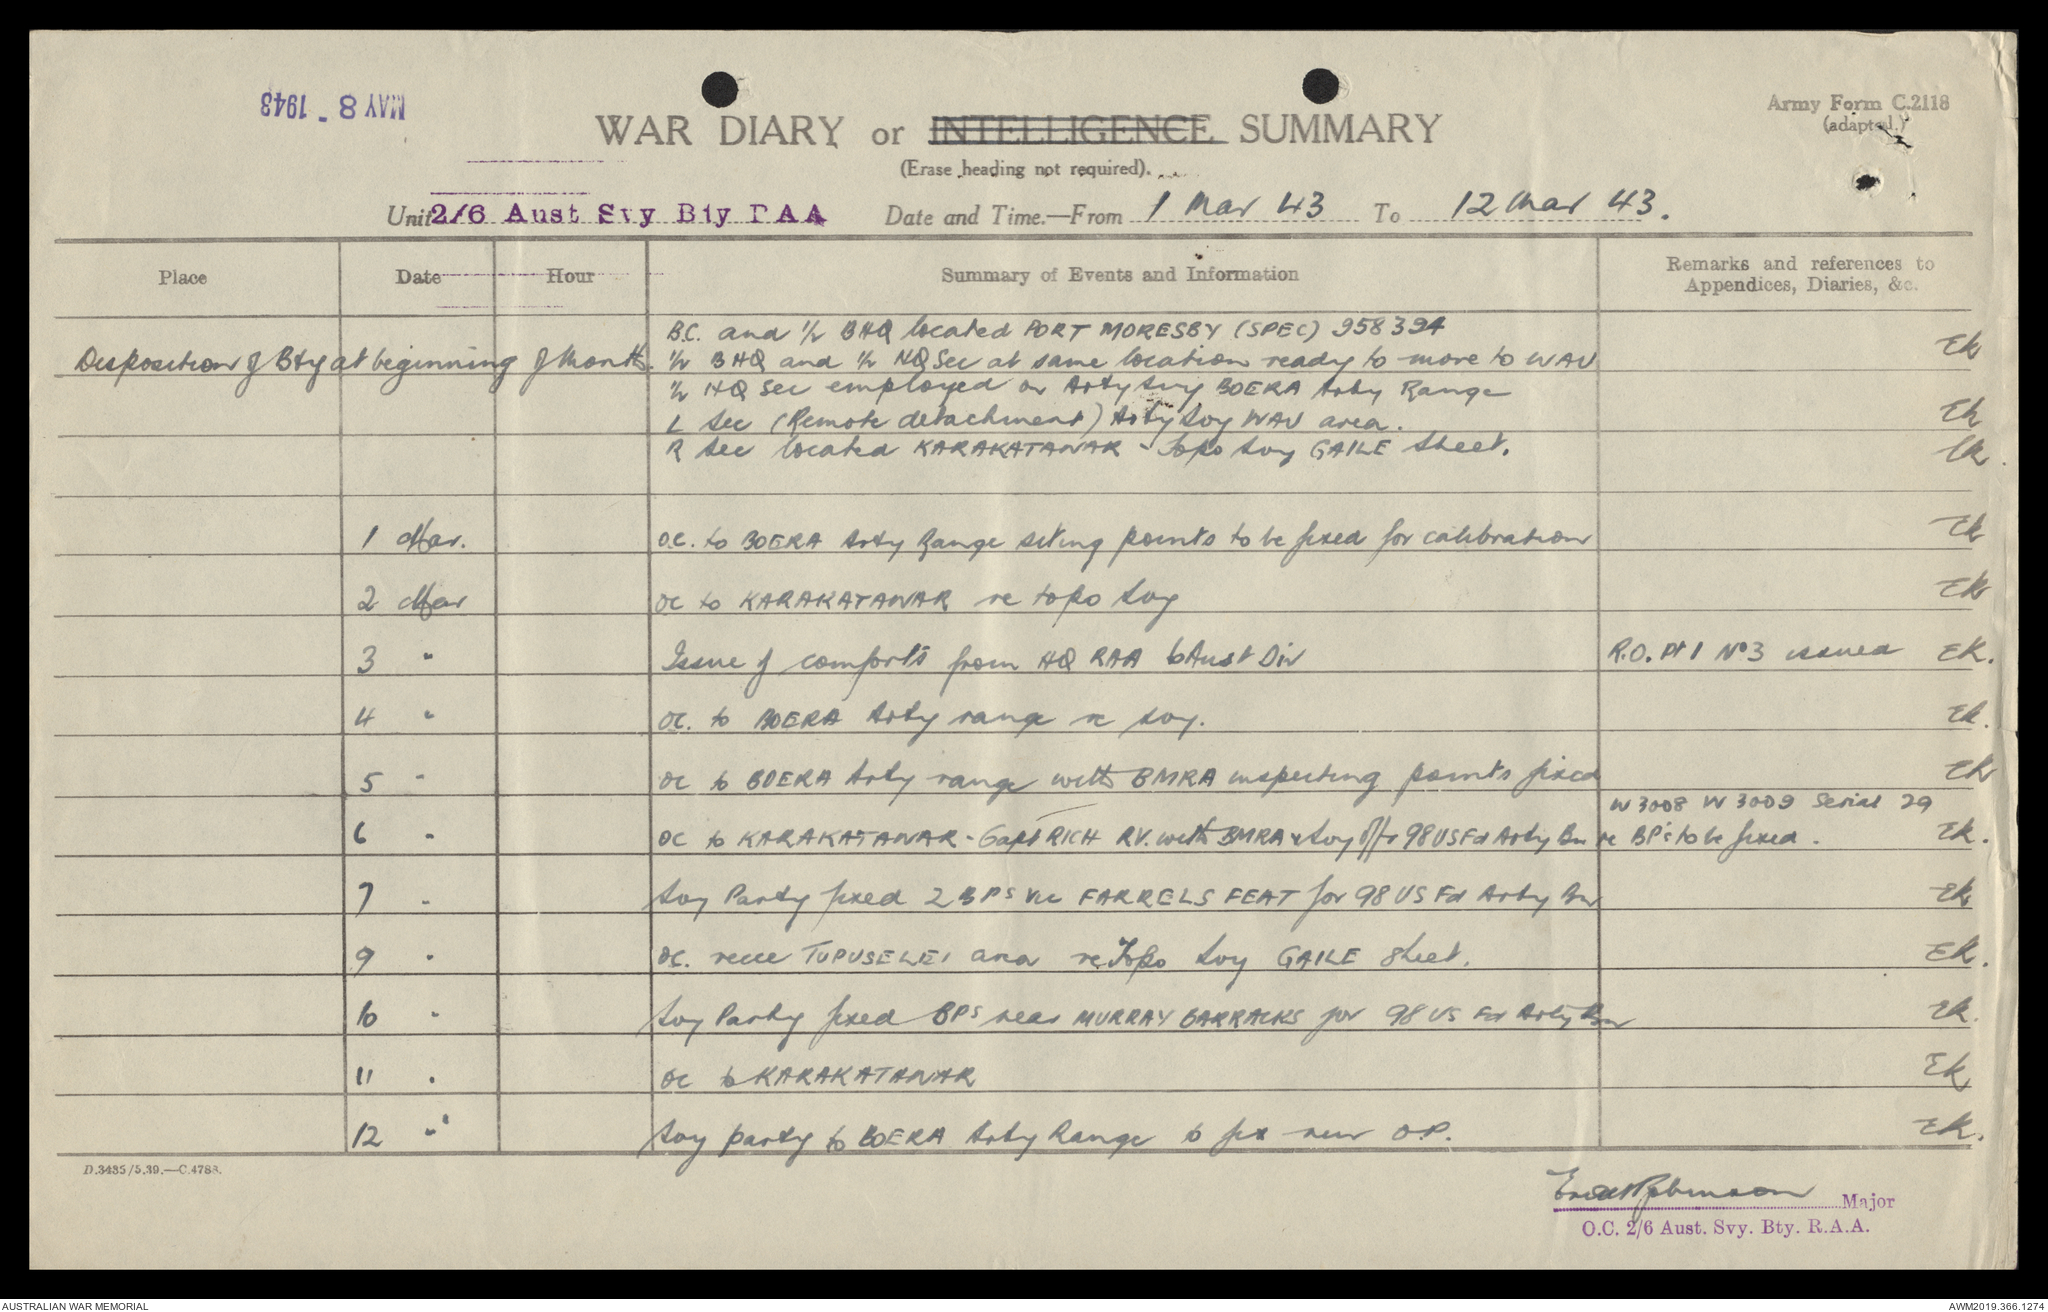 MAY 8 - 1943
Army Form C.2118
(adapted.)
WAR DIARY or INTELLIGENCE SUMMARY
(Erase heading not required).
Unit 2/6 Aust Svy Bty RAA Date and Time.—From 1 Mar 43 To 12 Mar 43.
Place Date Hour Summary of Events and Information Remarks and references to
Appendices, Diaries, &c.
B.C. and ½ BHQ located PORT MORESBY (SPEC) 958394
Disposition of Bty at beginning of Month. ½ BHQ and ½ HQ Sec at same location ready to move to WAU Ek
½ HQ Sec employed on Arty Svy BOERA Arty Range
L Sec (Remote detachment) Arty Svy WAU area. Ek
R Sec located KARAKATANAR - Topo Svy GAILE Sheet. Ek
1 Mar. O.C. to BOERA Arty Range siting points to be fixed for calibration Ek
2 Mar OC to KARAKATANAR re topo Svy Ek
3 " Issue of comforts from HQ RAA 6 Aust Div R.O. Pt 1 No 3 issued Ek.
4 " OC. to BOERA Arty range re svy. Ek.
5 " OC to BOERA Arty range with BMRA inspecting points fixed Ek
W3008 W3009 Serial 29
6 " OC to KARAKATANAR - Capt RICH RV. with BMRA & Svy Offr 98 US Fd Arty Bn re BPs to be fixed. Ek.
7 " Svy Party fixed 2 BPs vic FARRELS FEAT for 98 US Fd Arty Bn Ek
9 " OC. recce TUPUSELEI area re Topo Svy GAILE Sheet. Ek.
10 " Svy Party fixed BPs near MURRAY BARRACKS for 98 US Fd Arty Bn Ek.
11 " OC to KARAKATANAR Ek
12 " Svy party to BOERA Arty Range to fix new O.P. Ek.
D.3435/5.39.—C.4788.
Robinson Major
O.C. 2/6 Aust. Svy. Bty. R.A.A.
AUSTRALIAN WAR MEMORIAL AWM2019.366.1274